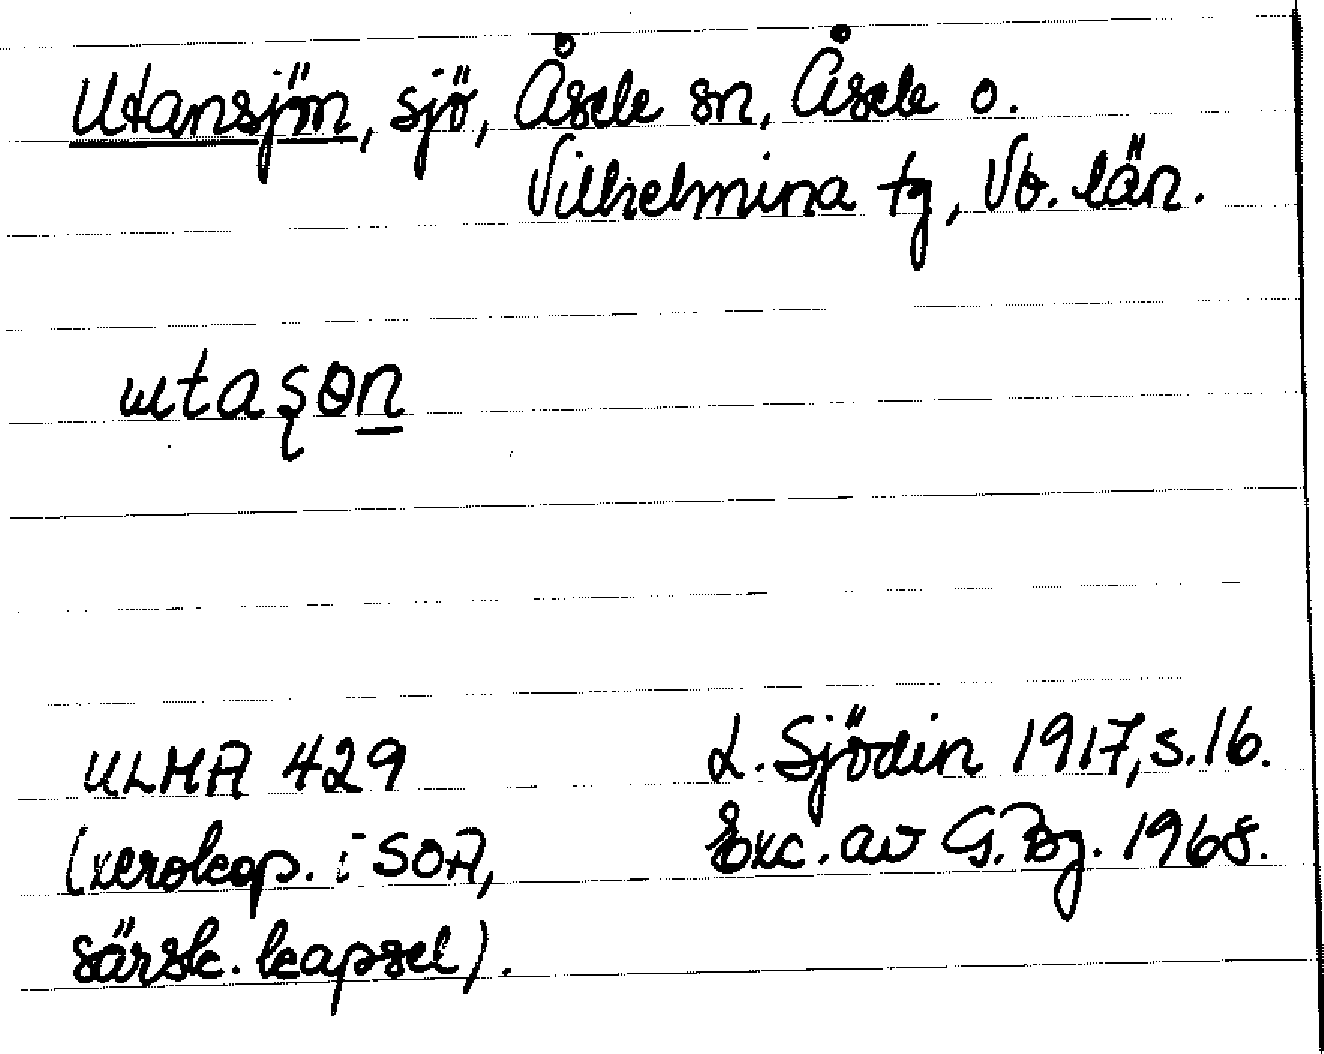 Utansjön, sjö, Åsele sn, Åsele o.
Vilhelmina tg, Vb. län.
utaşɵn
ULMA 429
(xerokop. i SOA,
särsk. kapsel).
L. Sjödin 1917, s.16.
Exc. av G. Bg. 1968.